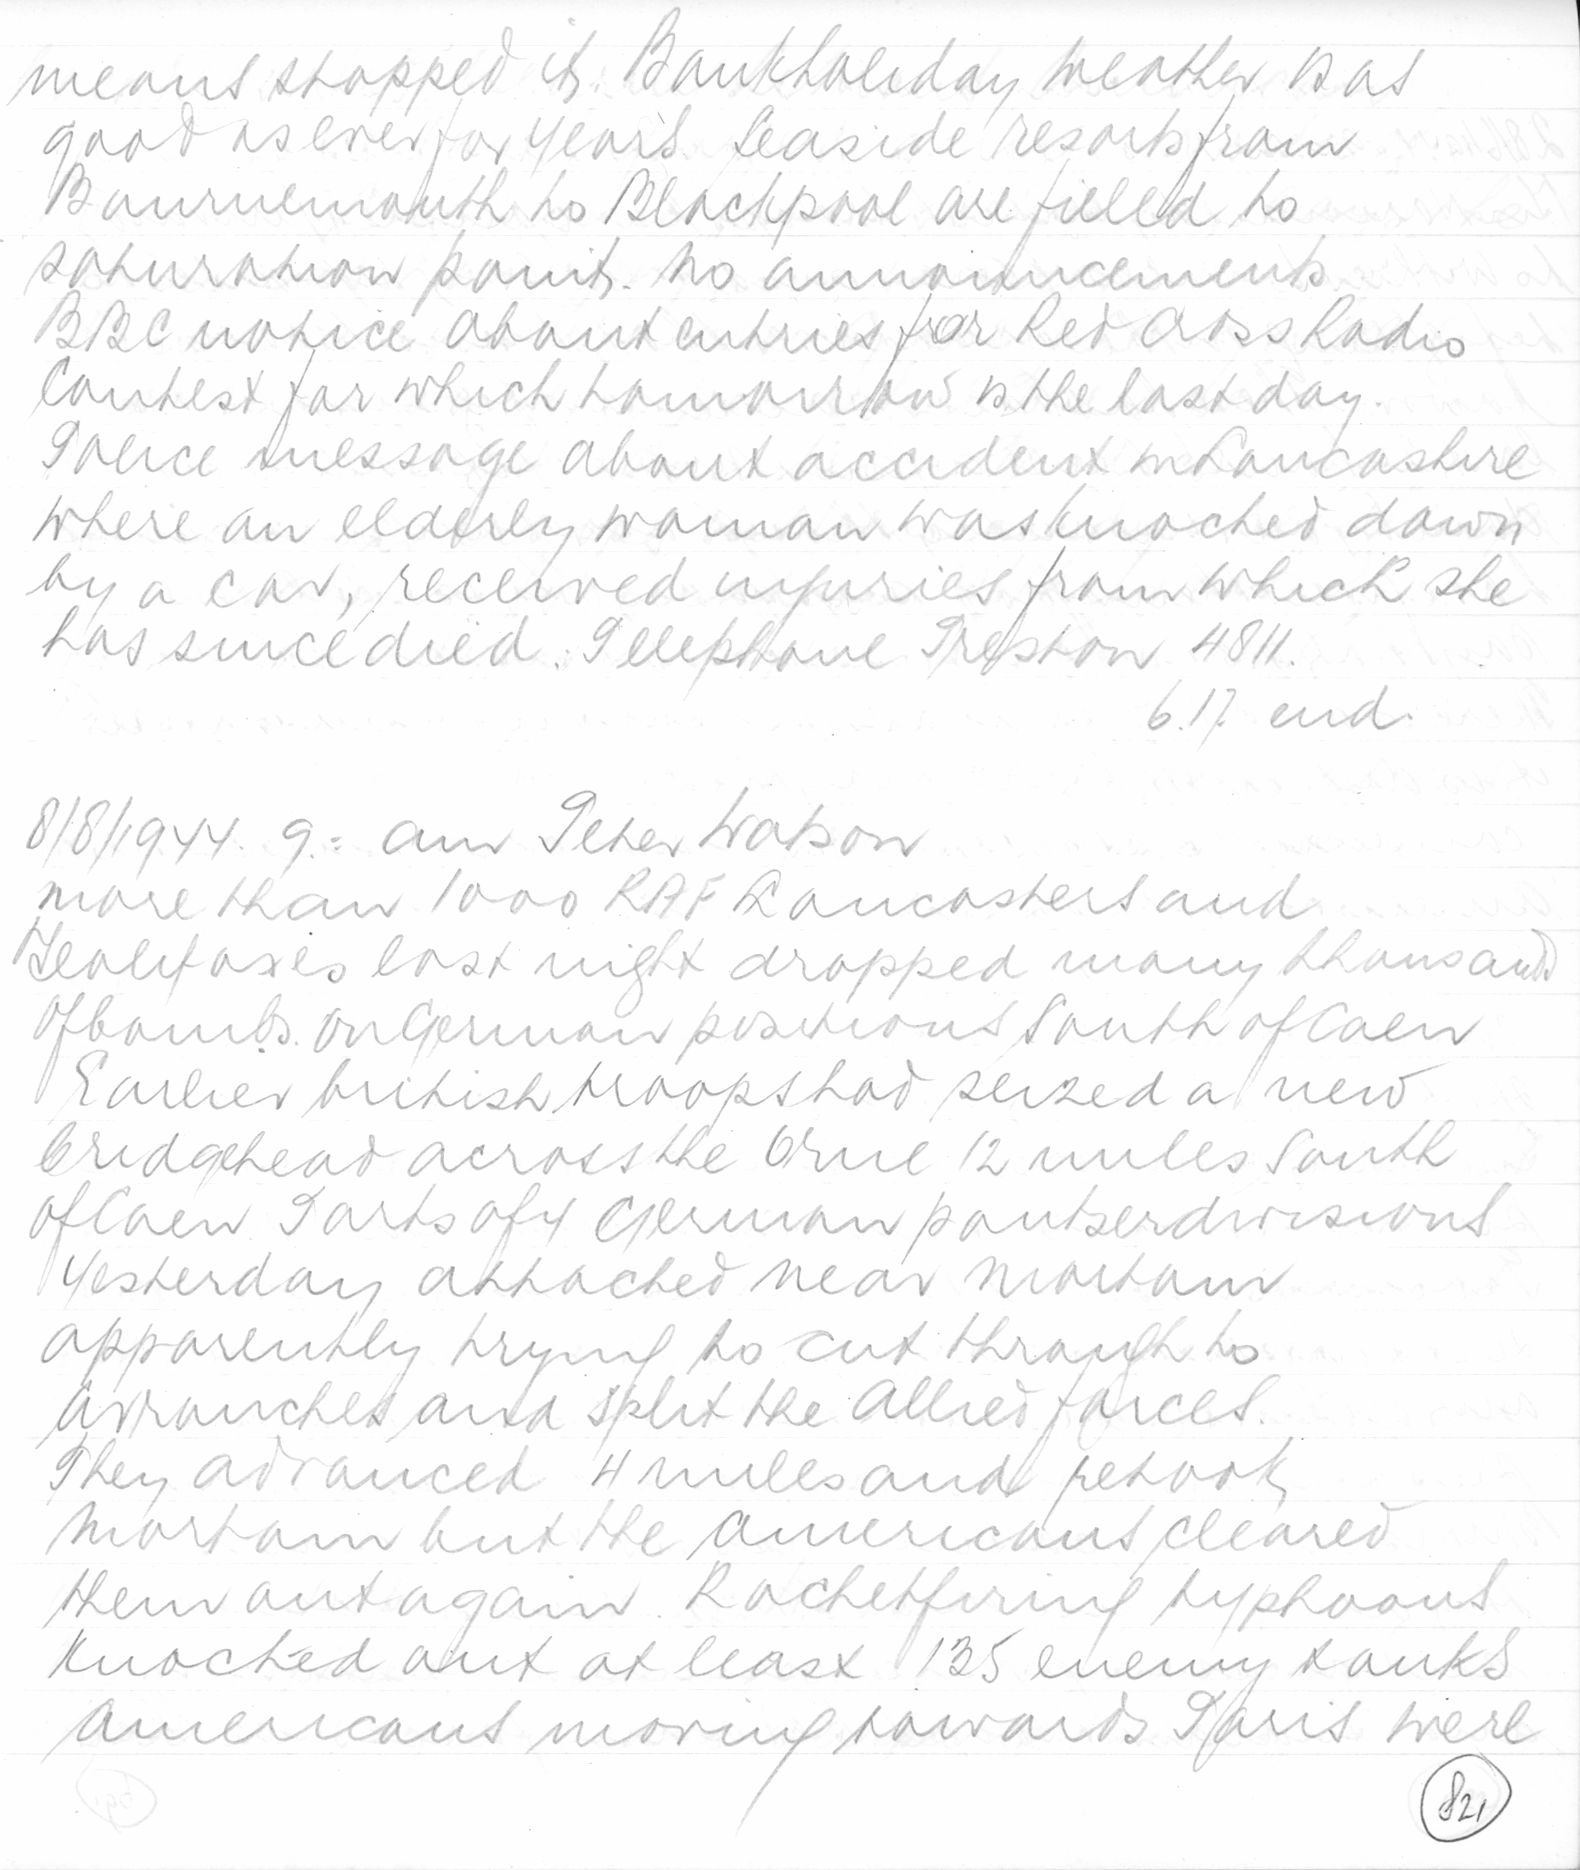 means stopped it. Bankholiday weather is as
good as ever for years. Seaside resorts from
Bournemouth to Blackpool are filled to
saturation point. No announcements
BBC notice about entries for Red Cross Radio
Contest for which tomorrow is the last day.
Police message about accident in Lancashire
where an elderly woman was knocked down
by a car, received injuries from which she
has since died. Telephone Preston 4811.
6.17. end.
8/8/1944. 9.= am Peter Watson
more than 1000 RAF Lancasters and
Healifaxes last night dropped many thousands
of bombs. on German positions South of Caen
Earlier british troops had seized a new
bridgehead across the Orne 12 miles South
of Caen Parts of 4 German pantserdivisions
yesterday attacked near Mortain
apparently trying to cut through to
Avranches and split the Allied forces.
They advanced 4 miles and retook
Mortain but the Americans cleared
them out again. Rocketfiring typhoons
knocked out at least 135 enemy tanks
Americans moving towards Paris were
821